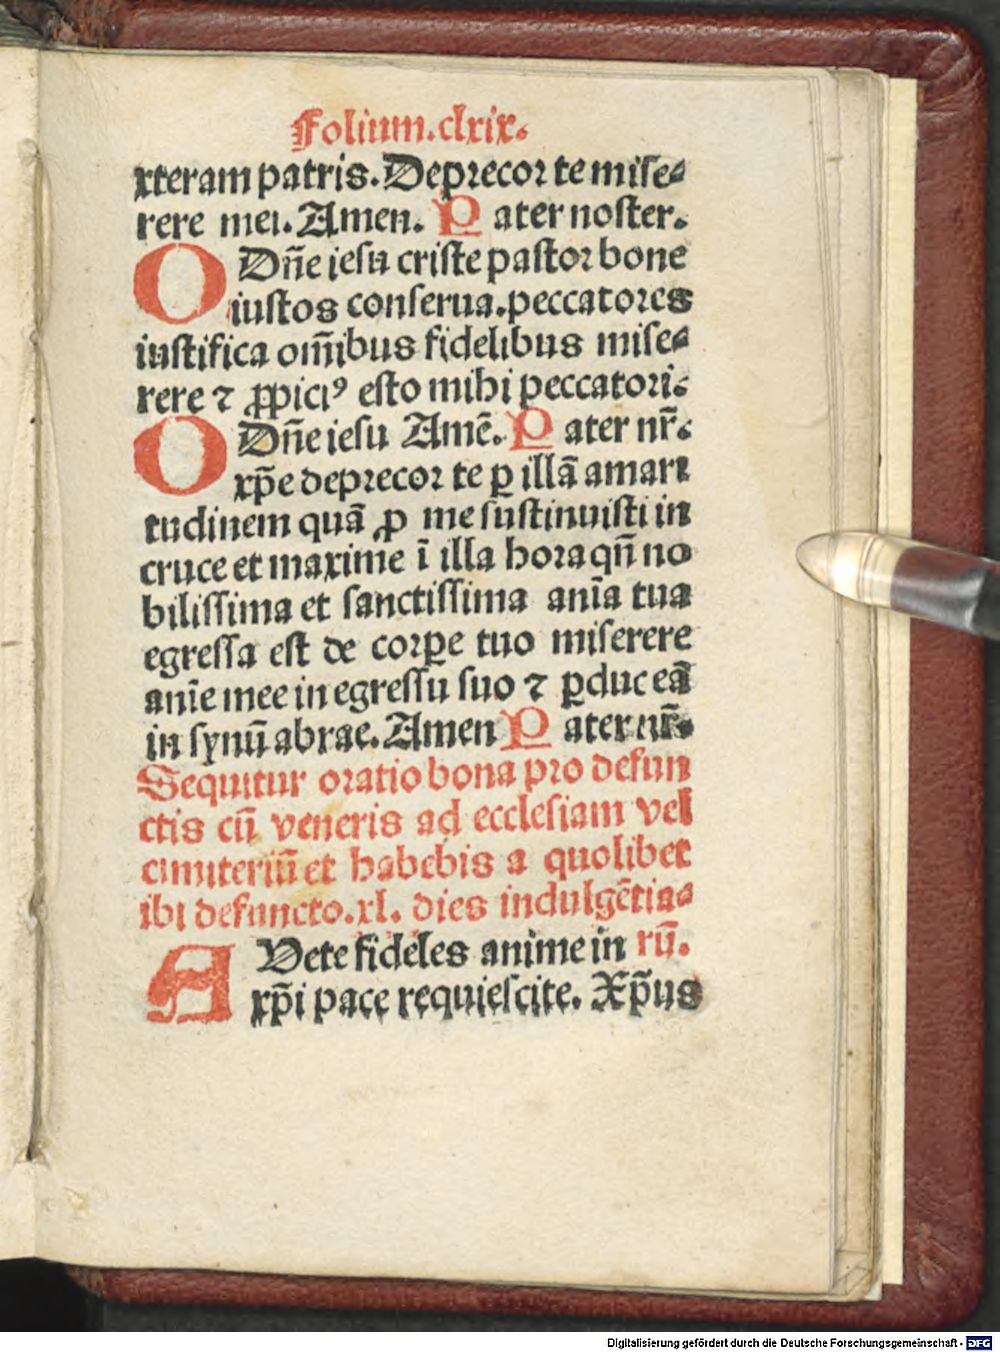 Folium.clxix.
xteram patris. Deprecor te mise-
rere mei. Amen. Pater noster.
O Dñe iesu criste pastor bone
iustos conserua. peccatores
iustifica om̄ibus fidelibus mise-
rere ⁊ ꝓpiciꝰ esto mihi peccatori.
O Dñe iesu Amē. Pater nr̄.
xp̄e deprecor te ꝑ illā amari
tudinem quā ꝓ me sustinuisti in
cruce et maxime ī illa hora qñ no
bilissima et sanctissima anīa tua
egressa est de corꝑe tuo miserere
anīe mee in egressu suo ⁊ ꝑduc eā
in synū abrae. Amen Pater nr̄.
Sequitur oratio bona pro defun
ctis cū veneris ad ecclesiam vel
cimiteriū et habebis a quolibet
ibi defuncto. xl. dies indulgētia-
AVete fideles anime in rū.
xp̄i pace requiescite. Xp̄us
Digitalisierung gefördert durch die Deutsche Forschungsgemeinschaft - DFG